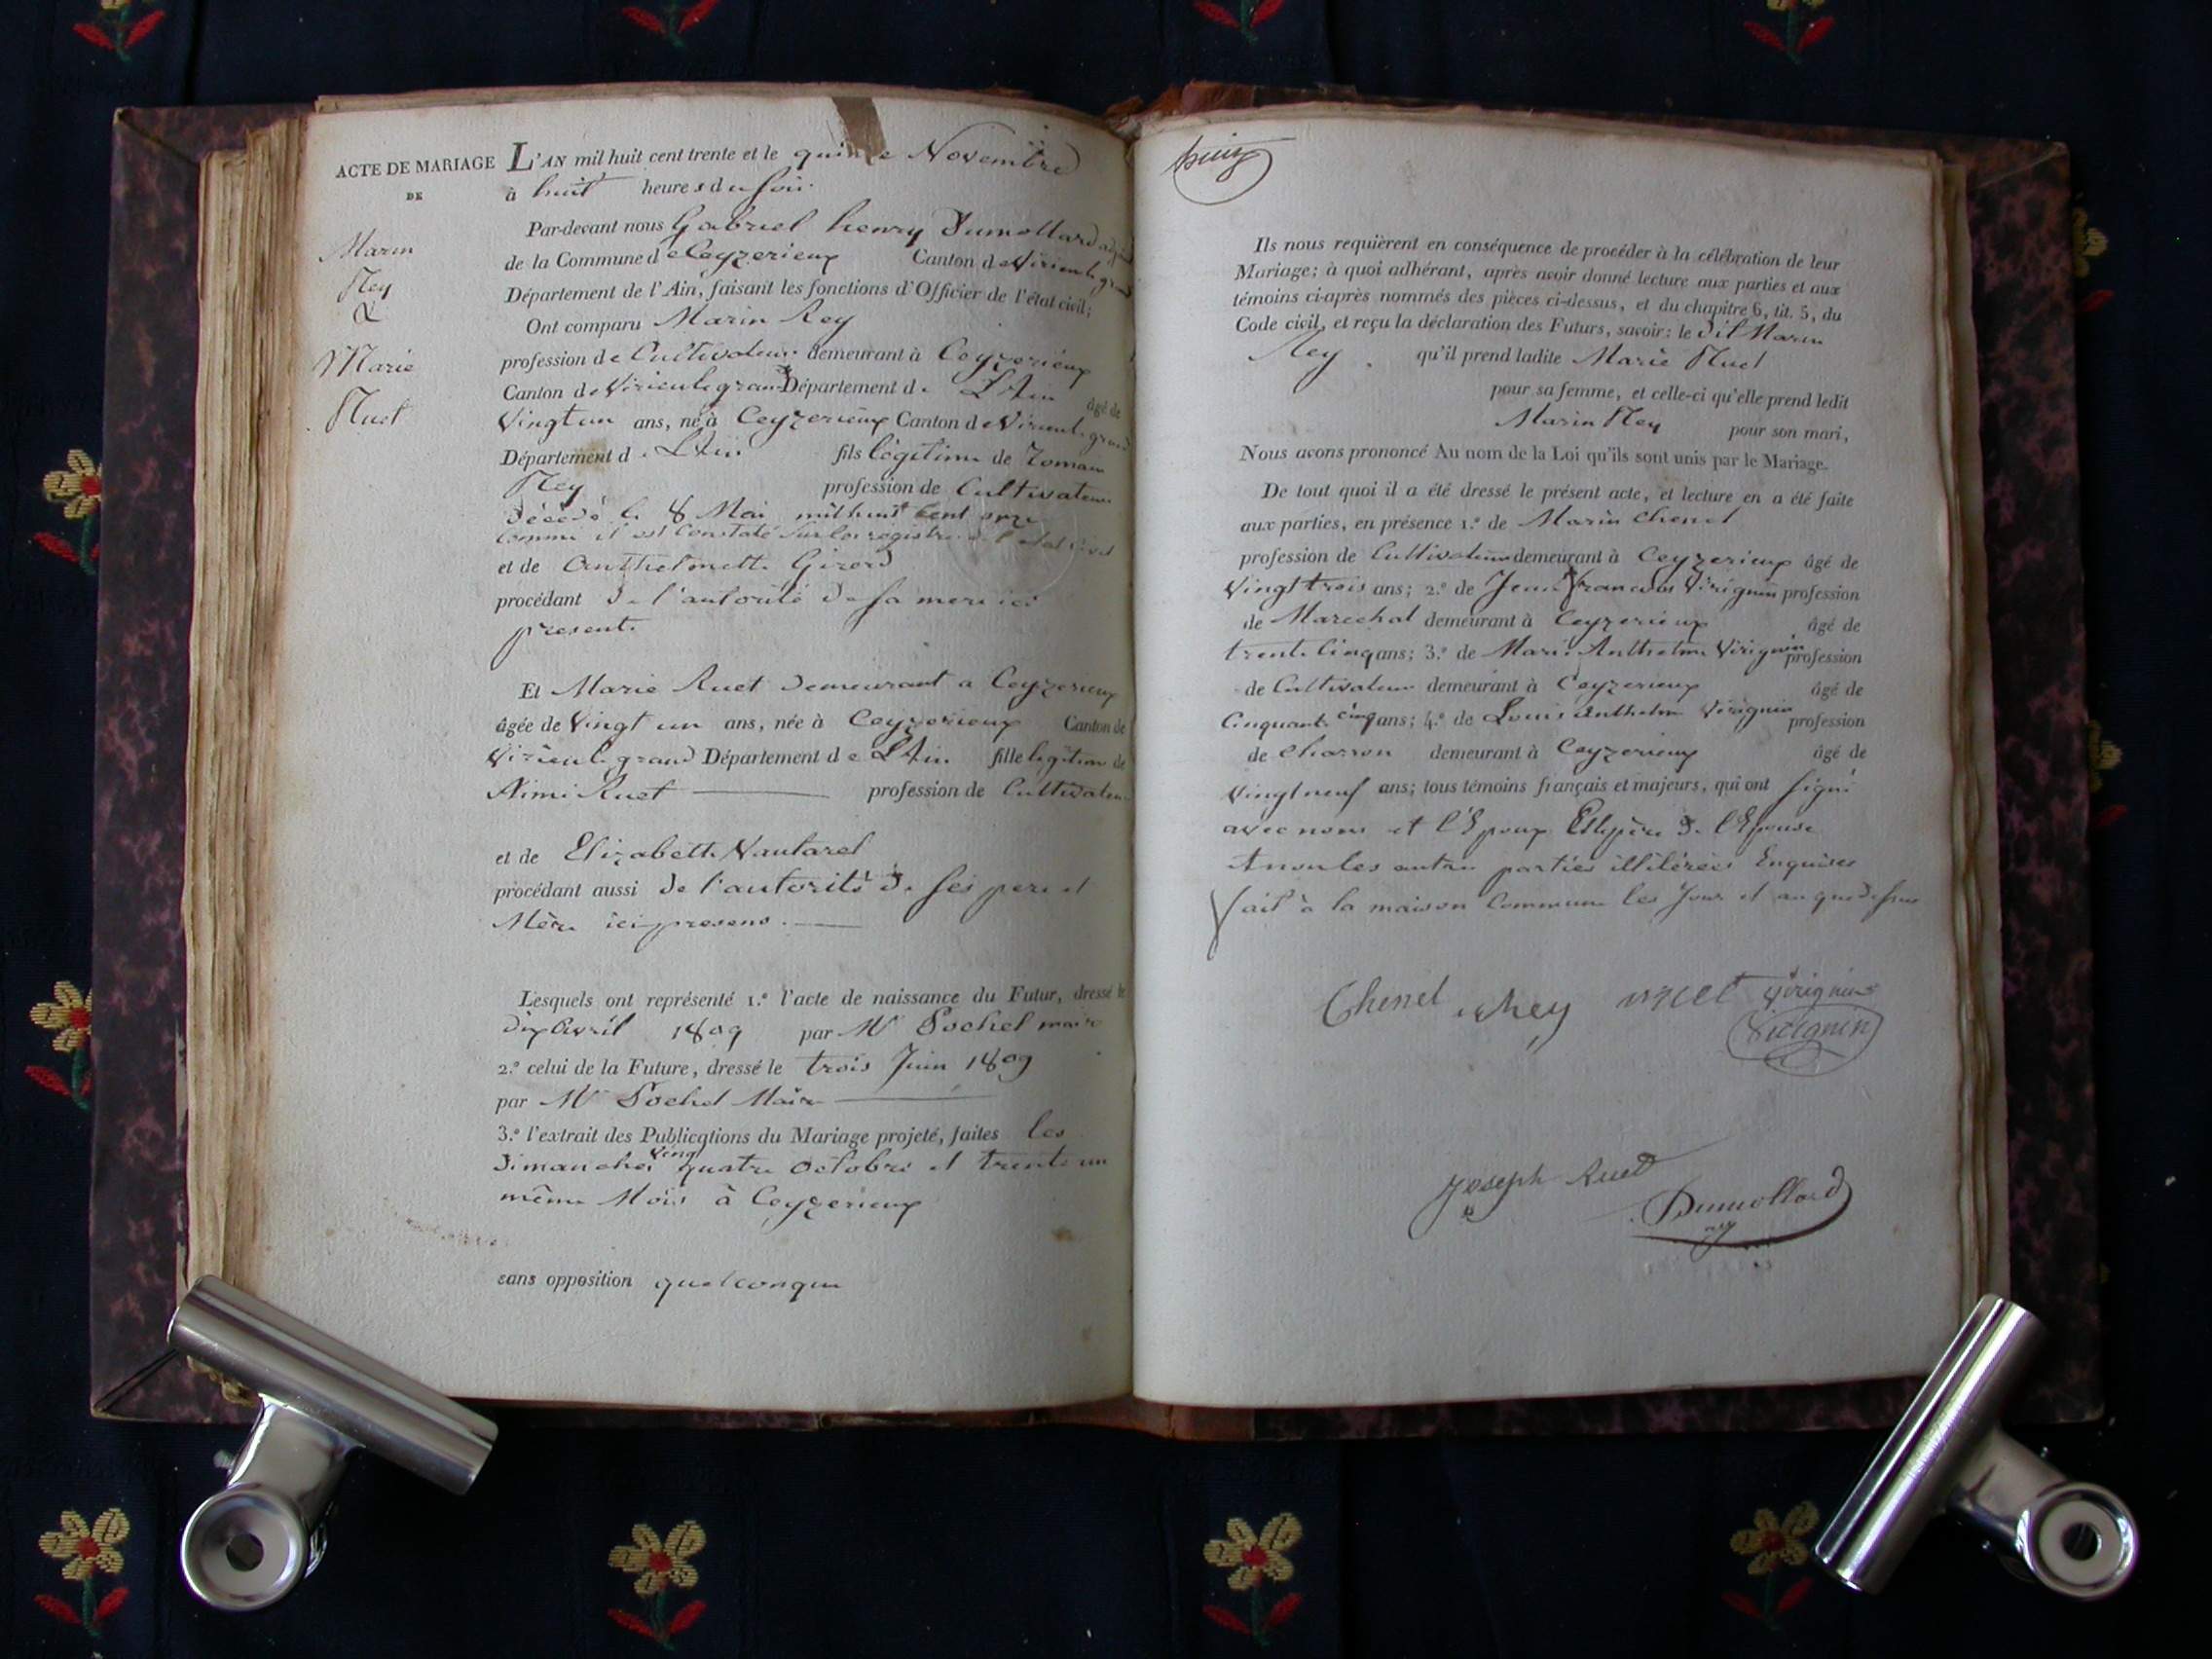 ACTE DE MARIAGE
DE
Marin
Rey
&
Marie
Ruet
L'AN mil huit cent trente et le quinze Novembre
à huit heures du soir.
Par-devant nous Gabriel henry Dumollard
de la Commune de Ceyzerieux Canton de Virieu le grand
Département de l'Ain, faisant les fonctions d'Officier de l'état civil;
Ont comparu Marin Rey
profession de Cultivateur demeurant à Ceyzerieux
Canton de Virieu le grand Département de L'Ain âgé de
Vingt un ans, né à Ceyzerieux Canton de Virieu le grand
Département de L'Ain fils légitime de Romain
Rey profession de Cultivateur
décédé le 8 Mai mil huit Cent onze
Comme il est Constaté sur les registres de l'état Civil
et de Anthelmette Girord
procédant de l'autorité de sa mere ici
presente
Et Marie Ruet demeurant a Ceyzerieux
âgée de Vingt un ans, née à Ceyzerieux Canton de
Virieu le grand Département de L'Ain fille légitime de
Aimé Ruet profession de Cultivateur
et de Elizabeth Vautaret
procédant aussi de l'autorité de ses pere et
Mère ici presens.
Lesquels ont représenté 1.° l'acte de naissance du Futur, dressé le
dix Avril 1809 par Mr Pochet maire
2.° celui de la Future, dressé le trois Juin 1809
par Mr Pochet Maire
3.° l'extrait des Publications du Mariage projeté, faites les
dimanches vingt quatre Octobre et trente un
même Mois à Ceyzerieux
sans opposition quelconque
Ils nous requièrent en conséquence de procéder à la célébration de leur
Mariage; à quoi adhérant, après avoir donné lecture aux parties et aux
témoins ci-après nommés des pièces ci-dessus, et du chapitre 6, tit. 5, du
Code civil, et reçu la déclaration des Futurs, savoir: le dit Marin
Rey qu'il prend ladite Marie Ruet
pour sa femme, et celle-ci qu'elle prend ledit
Marin Rey pour son mari,
Nous avons prononcé Au nom de la Loi qu'ils sont unis par le Mariage.
De tout quoi il a été dressé le présent acte, et lecture en a été faite
aux parties, en présence 1.° de Marin Chenel
profession de Cultivateur demeurant à Ceyzerieux âgé de
Vingt trois ans; 2.° de Jean François Virignin profession
de Marechal demeurant à Ceyzerieux âgé de
trente Cinq ans; 3.° de Marie Anthelme Virignin profession
de Cultivateur demeurant à Ceyzerieux âgé de
Cinquante cinq ans; 4.° de Louis Anthelme Virignin profession
de Charron demeurant à Ceyzerieux âgé de
Vingt neuf ans; tous témoins français et majeurs, qui ont signé
avec nous et l'Epoux Et le père de l'Epouse
& non les autres parties illitérées Enquises
fait à la maison Commune les Jour et an que dessus
Chenel Rey Ruet Virignin
Virignin
Joseph Ruet
Dumollard